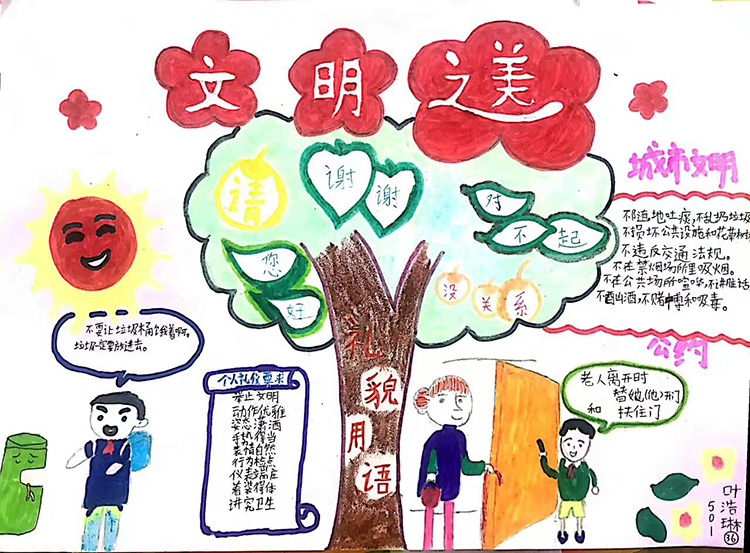 文明之美
请
谢谢
对不起
您好
没关系
礼貌用语
城市文明
不随地吐痰,不乱扔垃圾
不损坏公共设施和花草树
不违反交通法规。
不在禁烟场所里吸烟。
不在公共场所喧哗,不讲脏话
不酗酒,不赌博和吸毒。
公约
不要让垃圾桶饿着啊,
垃圾一定要放进去。
个人礼仪要求
举止文明
动作优雅
姿态潇洒
手势得当
表情自然
行为检点
仪表端庄
着装得体
讲究卫生
老人离开时
替她(他)开门
和 扶住门
叶浩琳
36
501